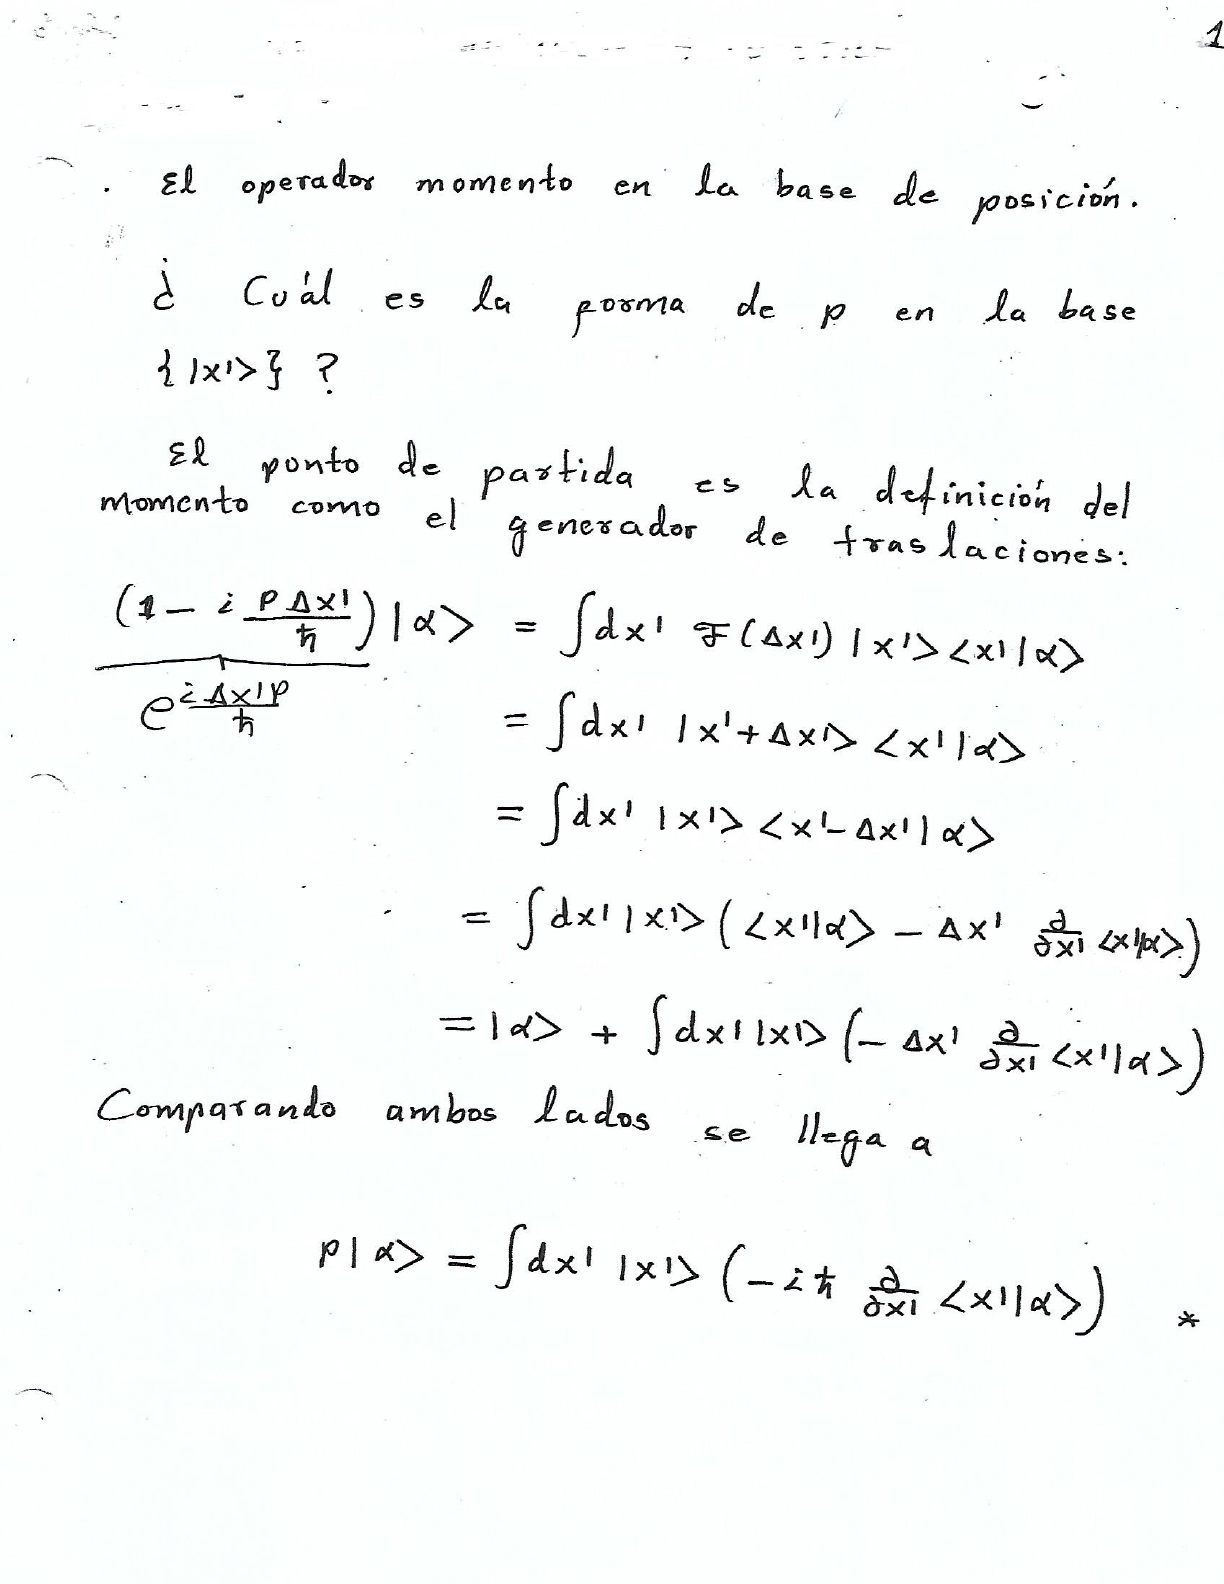 1
. El operador momento en la base de posición.
¿ Cuál es la forma de p en la base
{ |x'> } ?
El punto de partida es la definición del
momento como el generador de traslaciones:
(1 - i p Δx' / ħ) |α> = ∫dx' F(Δx') |x'> <x'|α>
e^{i Δx' p / ħ}
= ∫dx' |x'+Δx'> <x'|α>
= ∫dx' |x'> <x'-Δx'|α>
= ∫dx' |x'> ( <x'|α> - Δx' ∂/∂x' <x'|α> )
= |α> + ∫dx' |x'> ( - Δx' ∂/∂x' <x'|α> )
Comparando ambos lados se llega a
p|α> = ∫dx' |x'> ( -iħ ∂/∂x' <x'|α> ) *